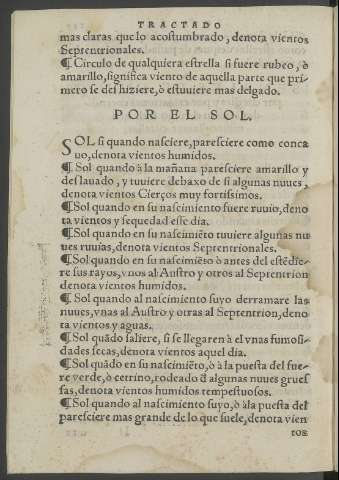 TRACTADO
mas claras que lo acostumbrado, denota vientos
Septentrionales.
¶ Circulo de qualquiera estrella si fuere rubeo, ò
amarillo, significa viento de aquella parte que pri-
mero se des hiziere, ò estuuiere mas delgado.
POR EL SOL.
SOL si quando nasciere, paresciere como conca
uo, denota vientos humidos.
¶ Sol quando à la mañana paresciere amarillo y
deslauado, y tuuiere debaxo de si algunas nuues,
denota vientos Cierços muy fortissimos.
¶ Sol quando en su nascimiento fuere ruuio, deno
ta vientos y sequedad esse dia.
¶ Sol quando en su nascimiēto tuuiere algunas nu
ues ruuias, denota vientos Septentrionales.
¶ Sol quando en su nascimiēto ò antes del estēdie-
re sus rayos, vnos al Austro y otros al Septentrion
denota vientos humidos.
¶ Sol quando al nascimiento suyo derramare las
nuues, vnas al Austro y otras al Septentrion, deno
ta vientos y aguas.
¶ Sol quādo saliere, si se llegaren à el vnas fumosi-
dades secas, denota vientos aquel dia.
¶ Sol quādo en su nasciniēto, ò à la puesta del fue-
re verde, ò cetrino, rodeado d algunas nuues grues
sas, denota vientos humidos tempestuosos.
¶ Sol quando al nascimiento suyo, ò àla puesta del
paresciere mas grande de lo que suele, denota vien
tos